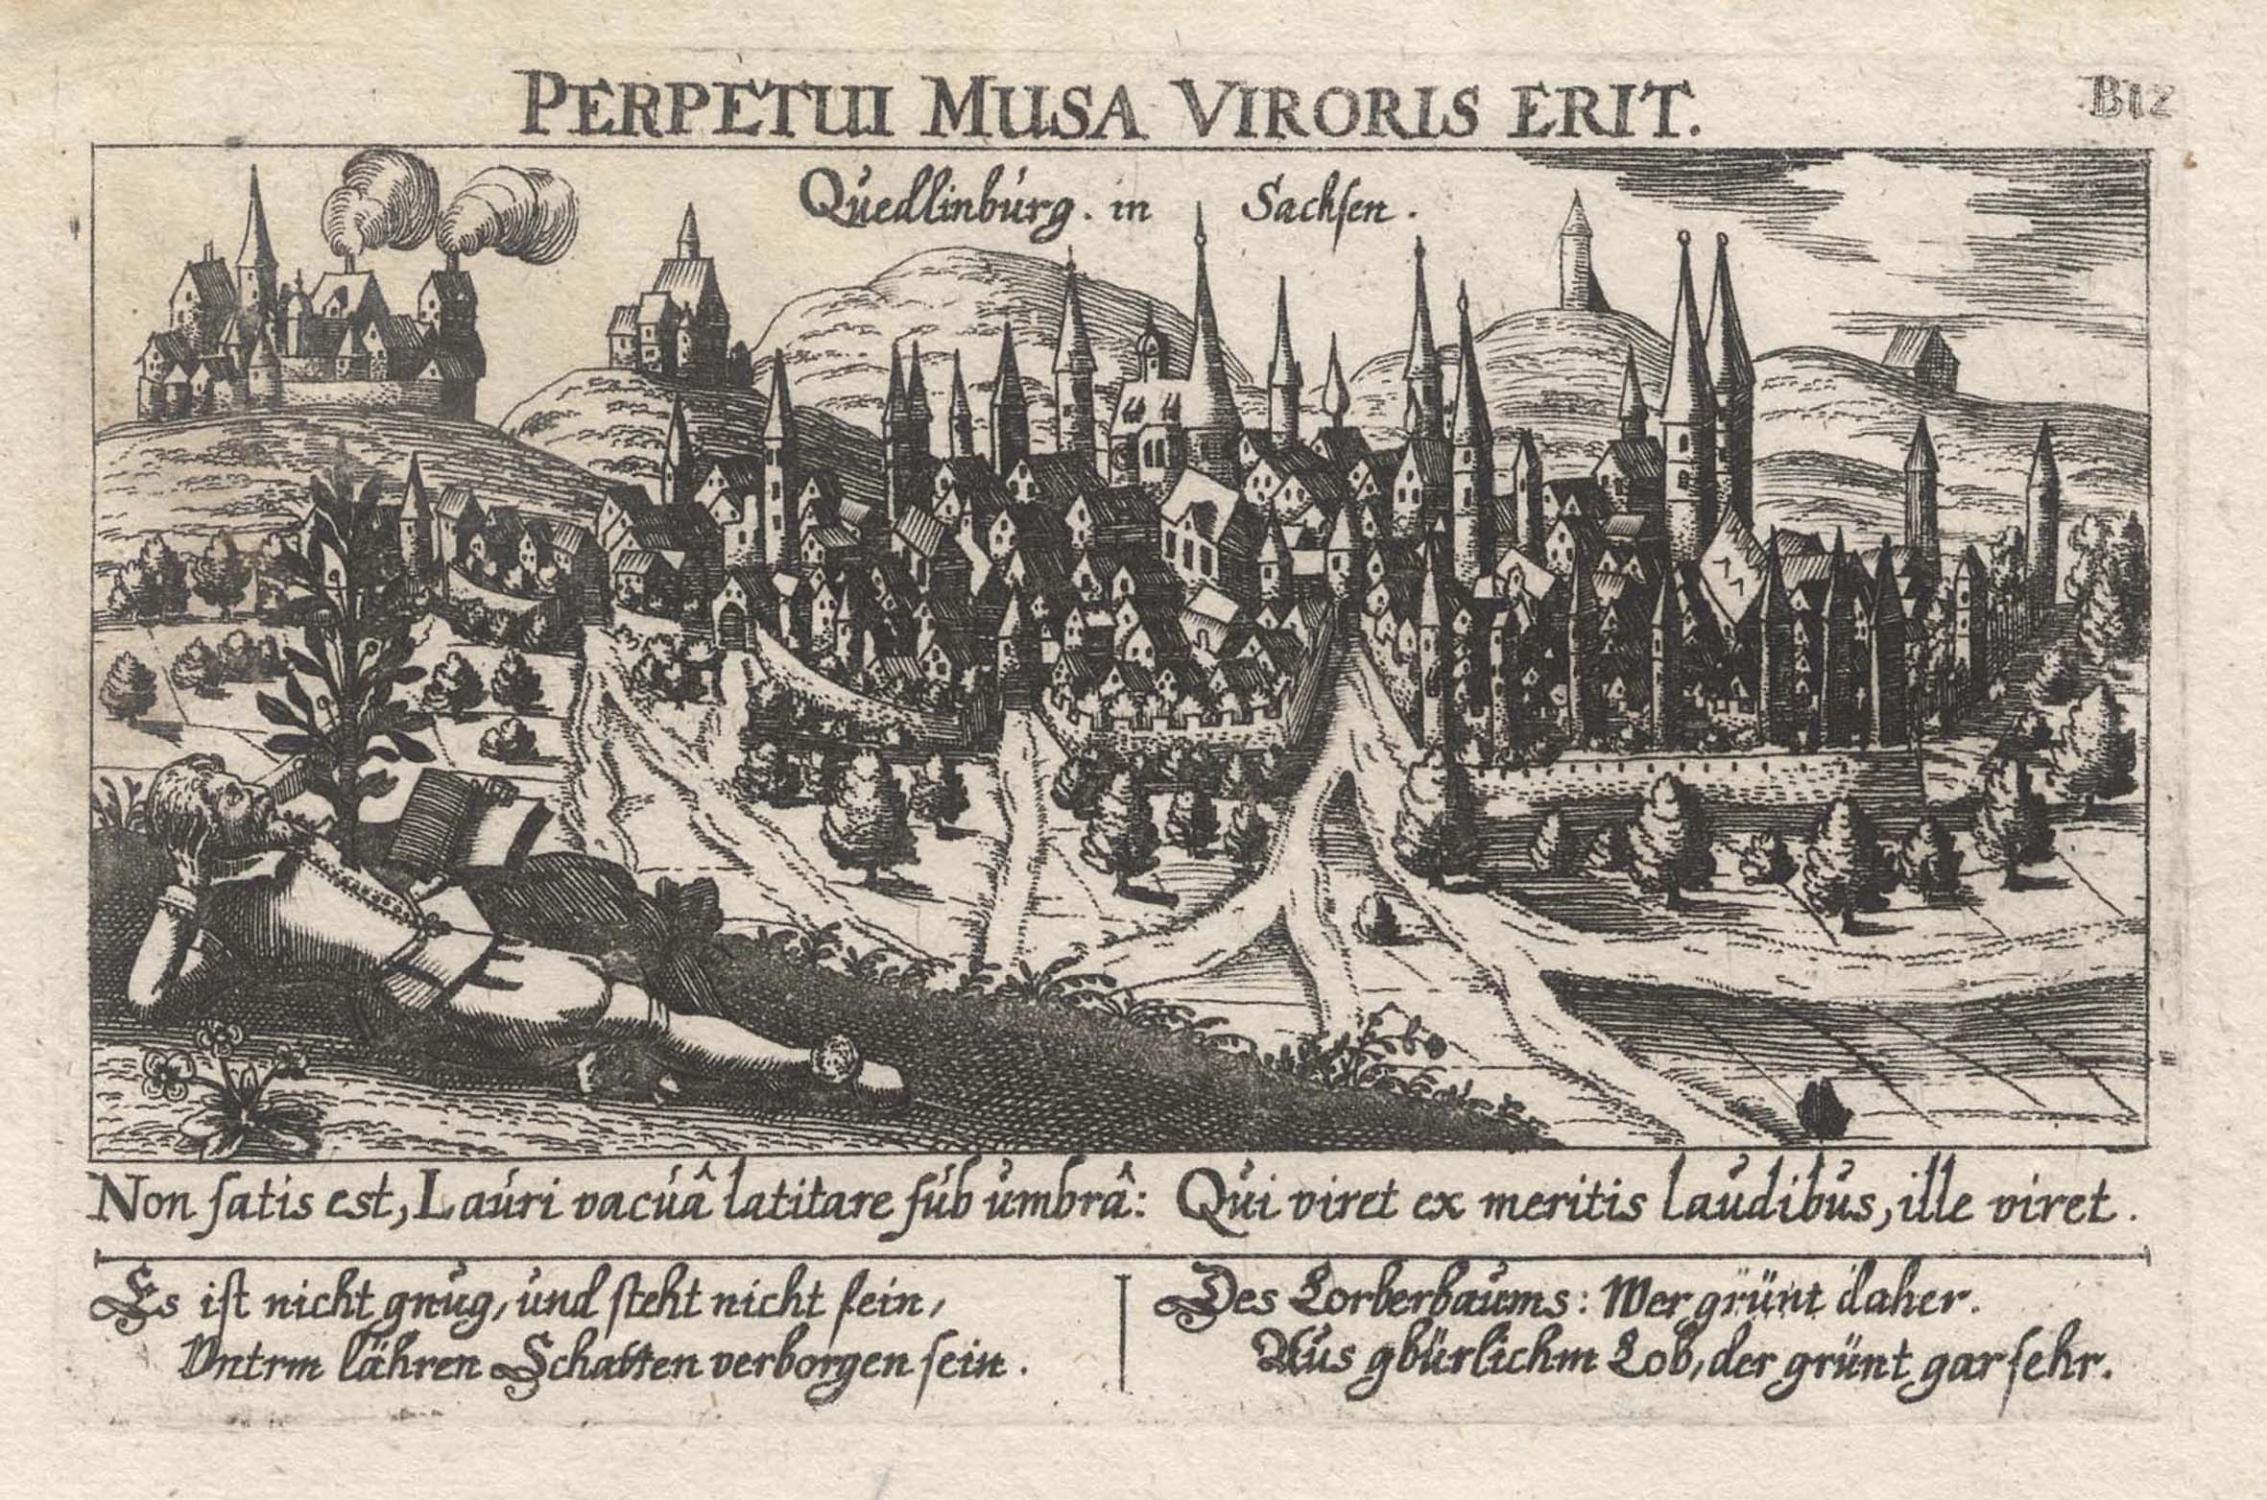 PERPETUI MUSA VIRORIS ERIT.
B12
Quedlinburg. in Sachſen.
Non ſatis est, Lauri vacuâ latitare ſub umbrâ: Qui viret ex meritis laudibus, ille viret.
Es iſt nicht gnug, und ſteht nicht fein,
Vntrm lähren Schatten verborgen ſein.
Des Lorberbaums: Wer grünt daher.
Aus gbürlichm Lob, der grünt gar ſehr.